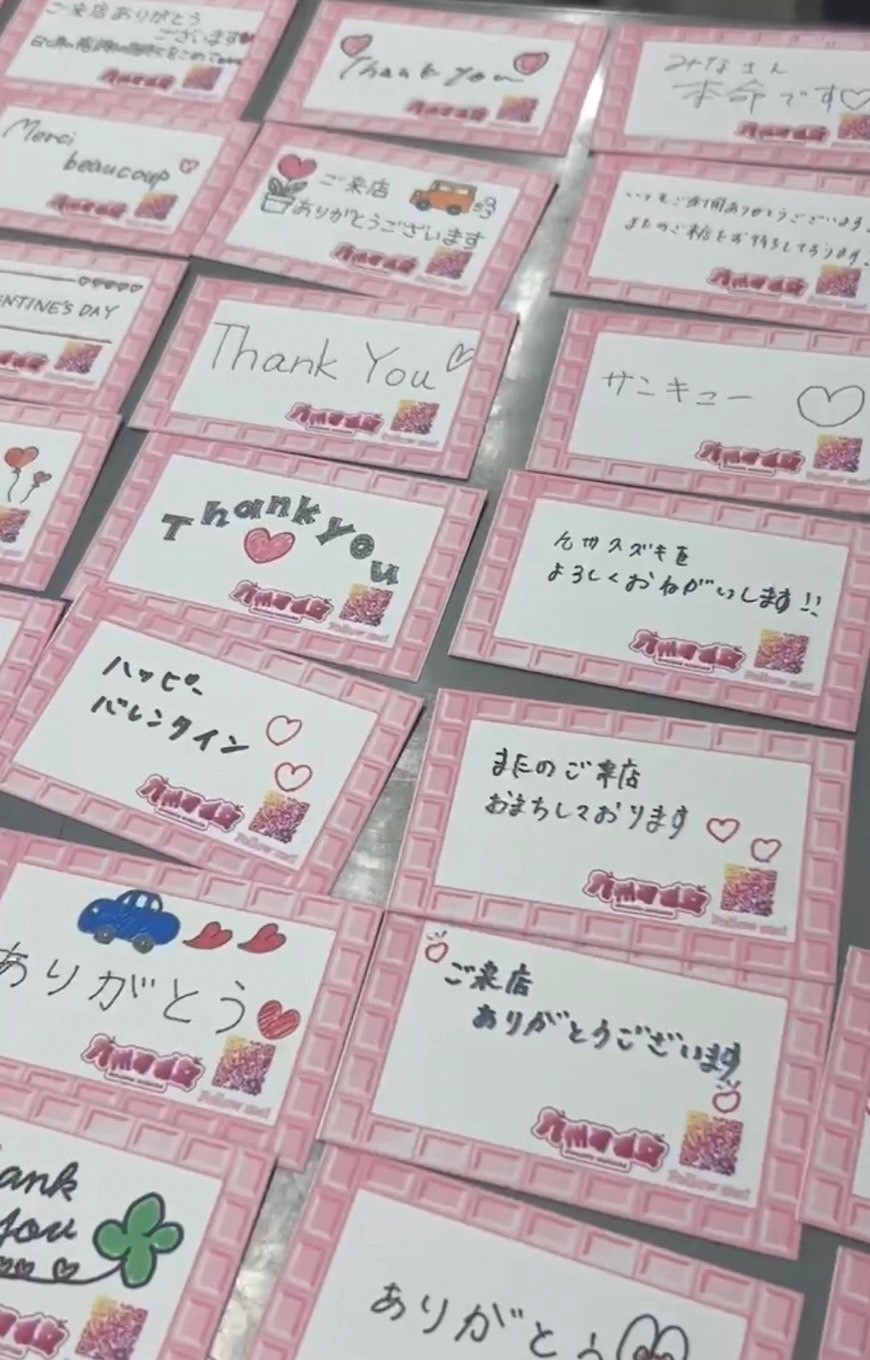 ご来店ありがとう
ございます
Thank you
みなさん
本命です
Merci
beaucoup
ご来店
ありがとうございます
いつもご利用ありがとうございます。
またのご来店をお待ちしております。
ENTINE'S DAY
Thank You
サンキュー
Thank you
九州スズキを
よろしくおねがいします!!
ハッピー
バレンタイン
またのご来店
おまちしております
ありがとう
ご来店
ありがとうございます
ank
you
ありがとう
Follow me!